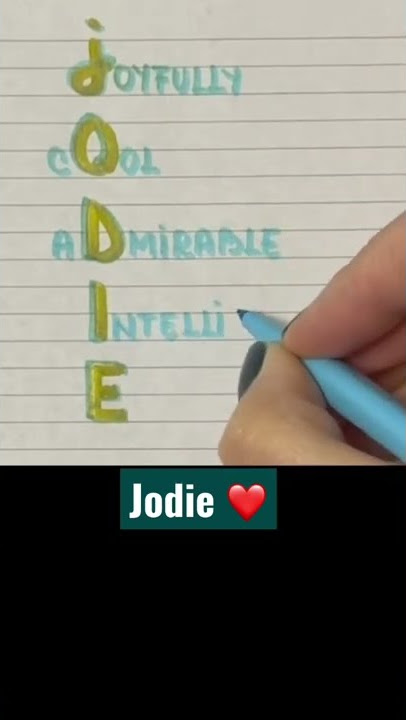 jOYFULLY
COOL
ADMIRABLE
INTELLi
E
Jodie ❤️